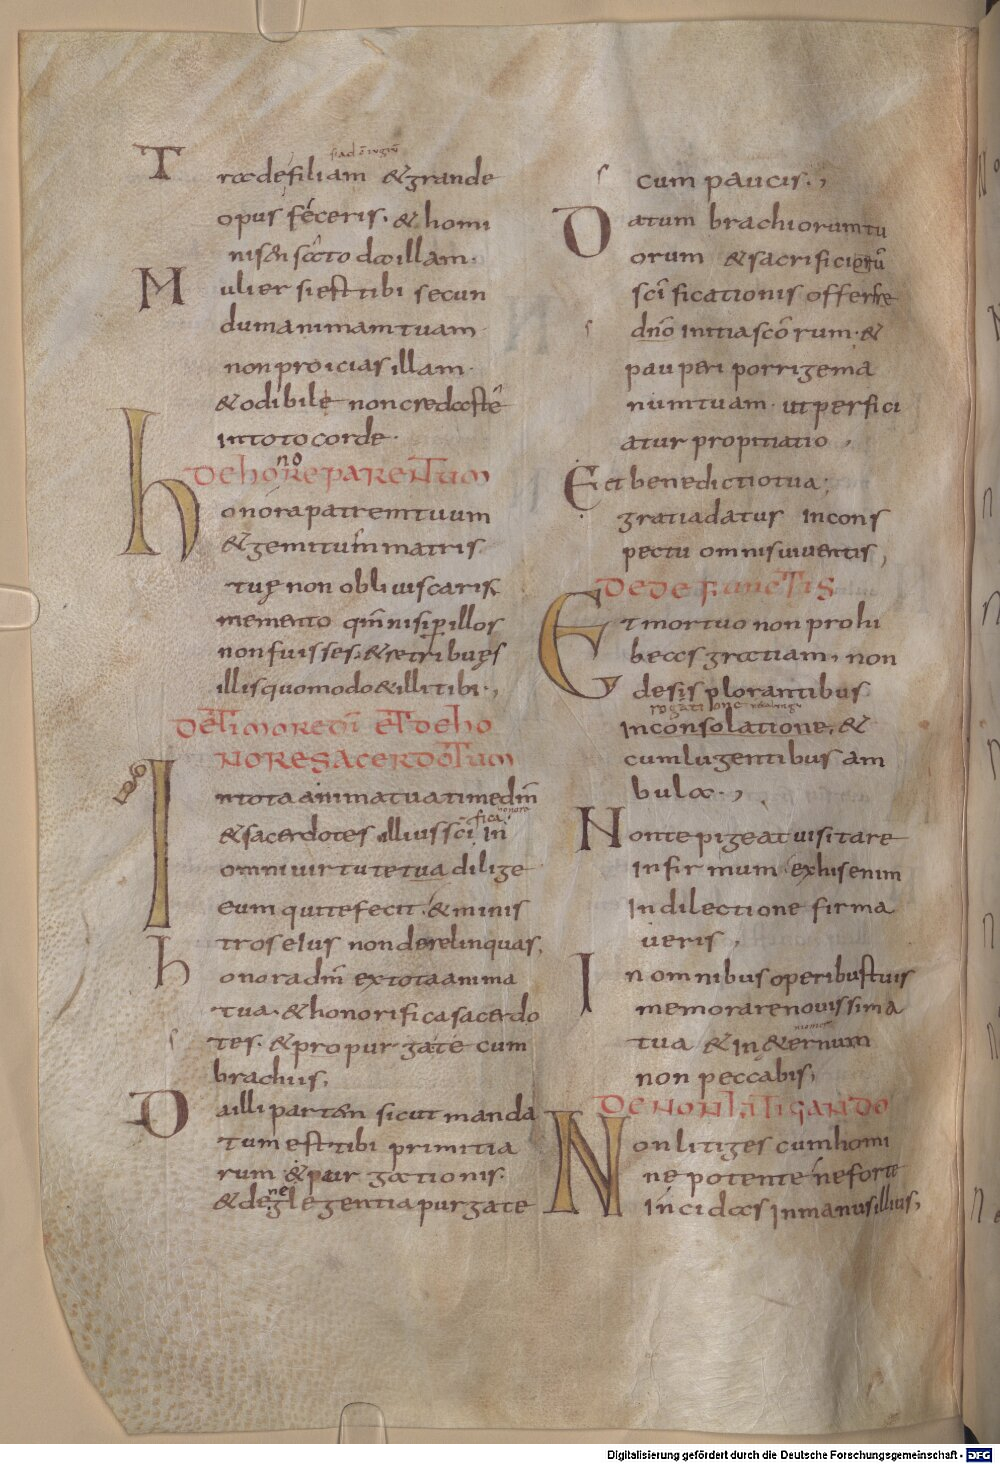 Trade filiam & grande
opus feceris. & homi
ni sensato da illam.
Mulier si est tibi secun
dum animam tuam
non proicias illam.
& odibile non credas te
in toto corde.
DE HONORE PARENTUM
honora patrem tuum
& gemitum matris
tuę non obliuiscaris
memento qm̄ nisi per illos
non fuisses. & retribues
illis quomodo & illi tibi.,
DE TIMORE DI ET DE HO
NORE SACERDOTUM
In tota anima tua time dm̄
& sacerdotes illius sc̄ifica. In
omni uirtute tua dilige
eum qui te fecit. & minis
tros eius non derelinquas,
honora dm̄ ex tota anima
tua. & honorifica sacerdo
tes. & propurga te cum
brachiis,
Da illi partem sicut manda
tum est tibi primitia
rum & purgationis.
& de neglegentia purga te
cum paucis.,
Datum brachiorum tu
orum & sacrificium
sc̄ificationis offerre
dn̄o initia sc̄orum. &
pauperi porrige ma
num tuam. ut perfici
atur propitiatio,
Et benedictio tua;
gratia datus in cons
pectu omnis uiuentis,
DE DEFUNCTIS
Et mortuo non prohi
beas gratiam, non
desis plorantibus
rogatione
in consolatione, &
cum lugentibus am
bula.,
Non te pigeat uisitare
infirmum ex his enim
in dilectione firma
ueris,
In omnibus operibus tuis
memorare nouissima
tua & in &ernum
non peccabis,
DE NON LITIGANDO
Non litiges cum homi
ne potente ne forte
incidas in manus illius,
Digitalisierung gefördert durch die Deutsche Forschungsgemeinschaft - DFG